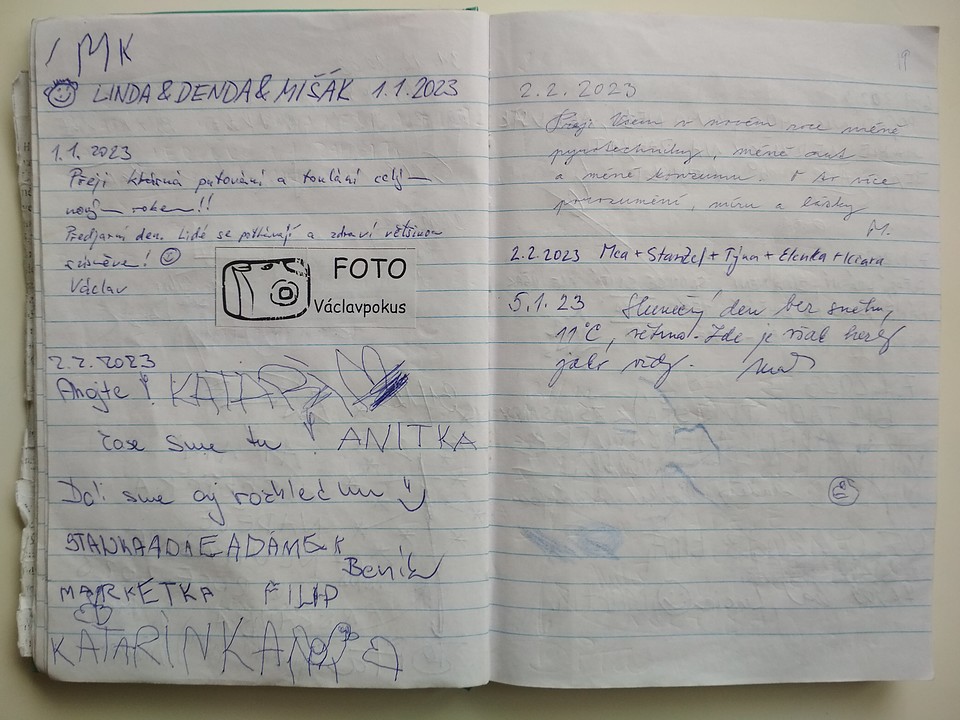 MK
LINDA & DENDA & MIŠÁK 1.1.2023
1.1. 2023
Přeji krásná putování a toulání celým
novým rokem!!
Předjarní den. Lidé se potkávají a zdraví většinou
úsměvem!
Václav
FOTO
Václavpokus
2.2. 2023
Ahojte!
zase sme tu! ANITKA
Dali sme aj rozhledňu
STANKA ADAMEK
Beník
MARKETKA FILIP
KATARINKA
2.2.2023
Přeji Všem v novém roce méně
pyrotechniky, méně aut
a méně konzumu. O to více
porozumění, míru a lásky
M.
2.2.2023 Mea + + Týna + Elenka + Kiara
5.1.23 Slunečný den bez sněhu,
11°C, větrno. Zde je však hezky
jako vždy.